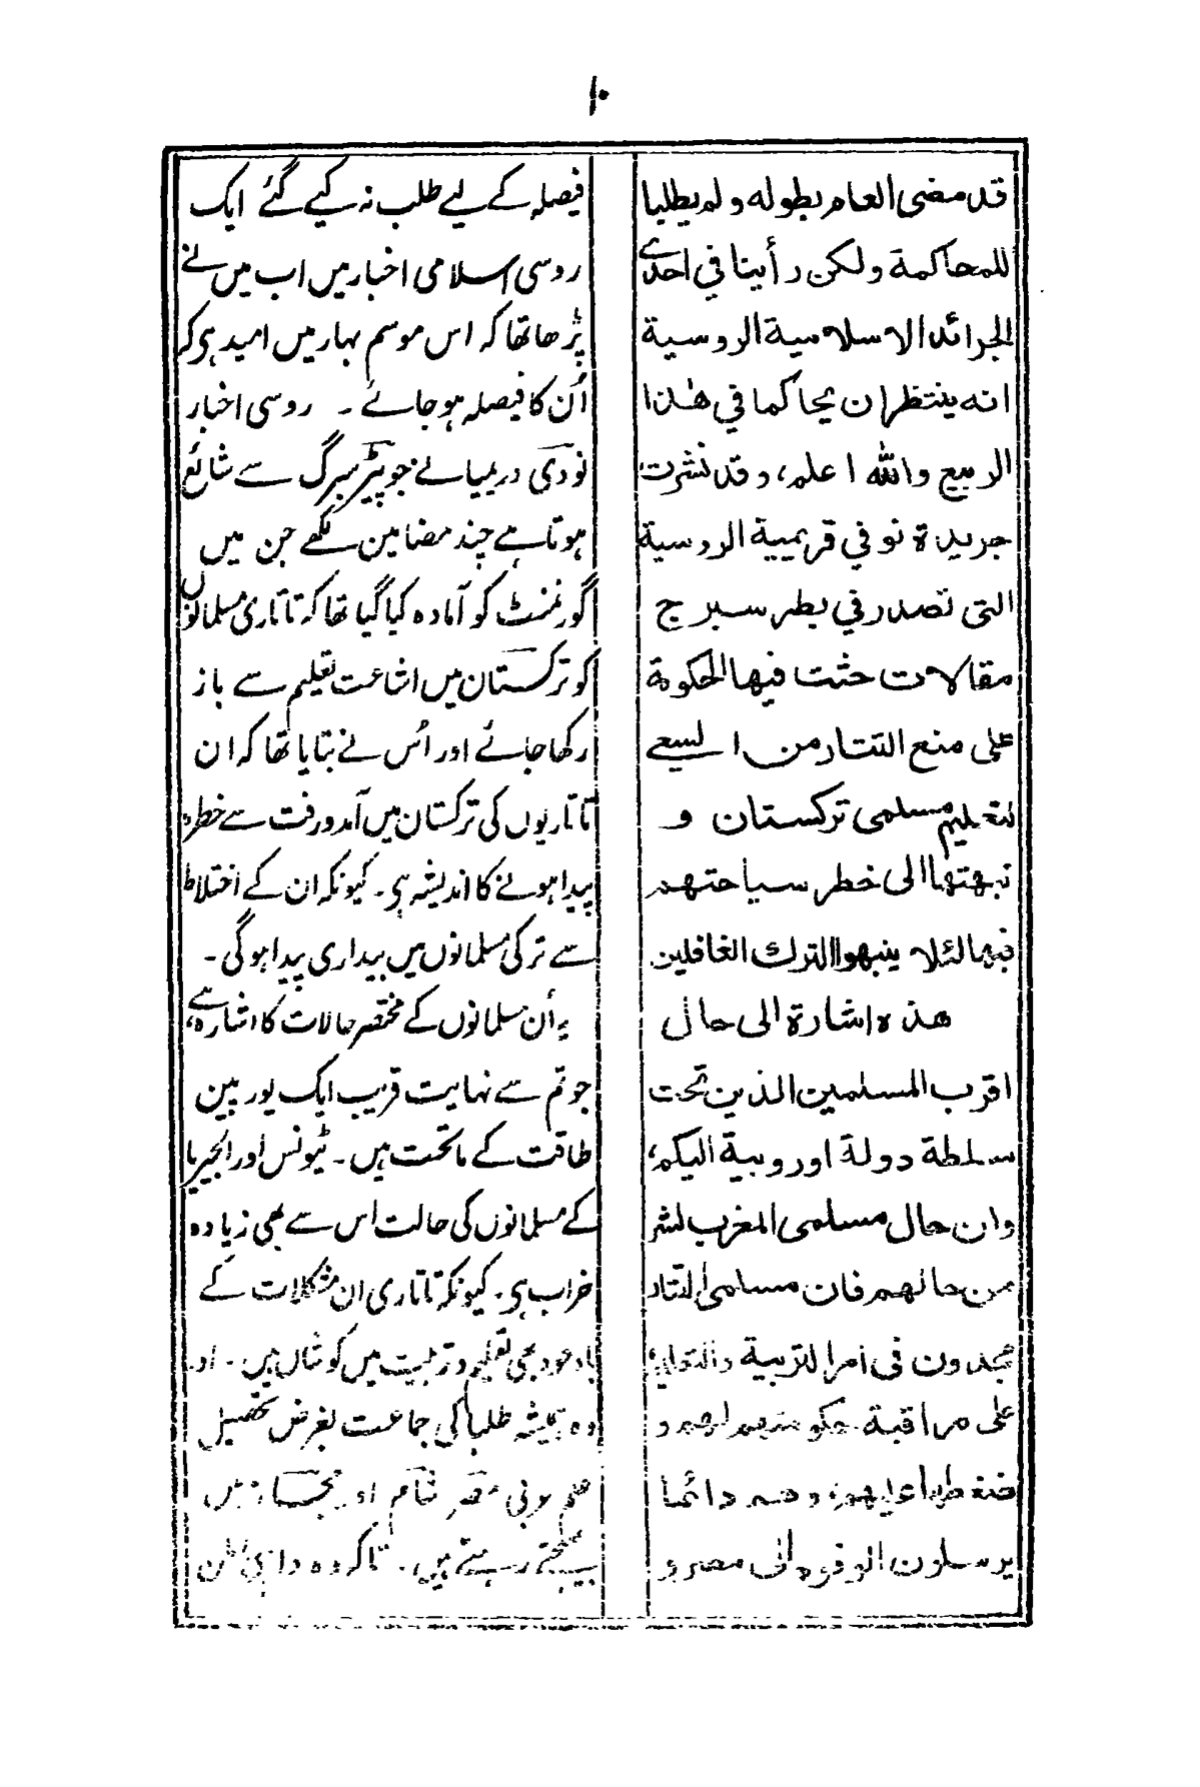 ۱۰
قد مضى العام بطوله ولم يطلبا
للمحاكمة ولكن رأينا في احدے
الجرائد الاسلامية الروسية
انه ينتظر ان يحاكما في هٰذا
الربيع والله اعلم، وقد نشرت
جريدة نو في قريمية الروسية
التى تصدر في بطر سبرج
مقالات حثت فيها الحكومة
على منع التتار من السعے
لتعليم مسلمى تركستان و
نبهتها الى خطر سياحتهم
فيها لئلا ينبهوا الترك الغافلين
هذه اشارة الى حال
اقرب المسلمين الذين تحت
سلطة دولة اوروبية اليكم،
وان حال مسلمى المغرب لشر
من حالهم فان مسلمى التتار
مجدون فى امر التربية والتعليم
على مراقبة حكومتهم لهم و
ضغطها عليهم، وهم دائما
يرسلون الوفود الى مصر و
فیصلہ کے لیے طلب نہ کیے گئے ایک
روسی اسلامی اخبار میں اب میں نے
پڑھا تھا کہ اس موسم بہار میں امید ہی کہ
اُن کا فیصلہ ہو جائے ۔ روسی اخبار
نودی دریمیا نے جو پیٹر سبرگ سے شائع
ہوتا ہے چند مضامین لکھے جن میں
گورنمنٹ کو آمادہ کیا گیا تھا کہ تاتاری مسلمانوں
کو ترکستان میں اشاعت تعلیم سے باز
رکھا جائے اور اُس نے بتایا تھا کہ ان
تاتاریوں کی ترکستان میں آمدورفت سے خطرہ
پیدا ہونے کا اندیشہ ہی ۔ کیونکہ ان کے اختلاط
سے ترکی مسلمانوں میں بیداری پیدا ہوگی ۔
یہ اُن مسلمانوں کے مختصر حالات کا اشارہ ہے،
جو تم سے نہایت قریب ایک یورپین
طاقت کے ماتحت ہیں ۔ ٹیونس اور الجیریا
کے مسلمانوں کی حالت اس سے بھی زیادہ
خراب ہی ۔ کیونکہ تاتاری ان مشکلات کے
باوجود بھی تعلیم و تربیت میں کوشاں ہیں ۔ اور
وہ ہمیشہ طلبا کی جماعت بغرض تحصیل
علم عربی مصر شام اور حجاز میں
بھیجتے رہتے ہیں ۔ تاکہ وہ